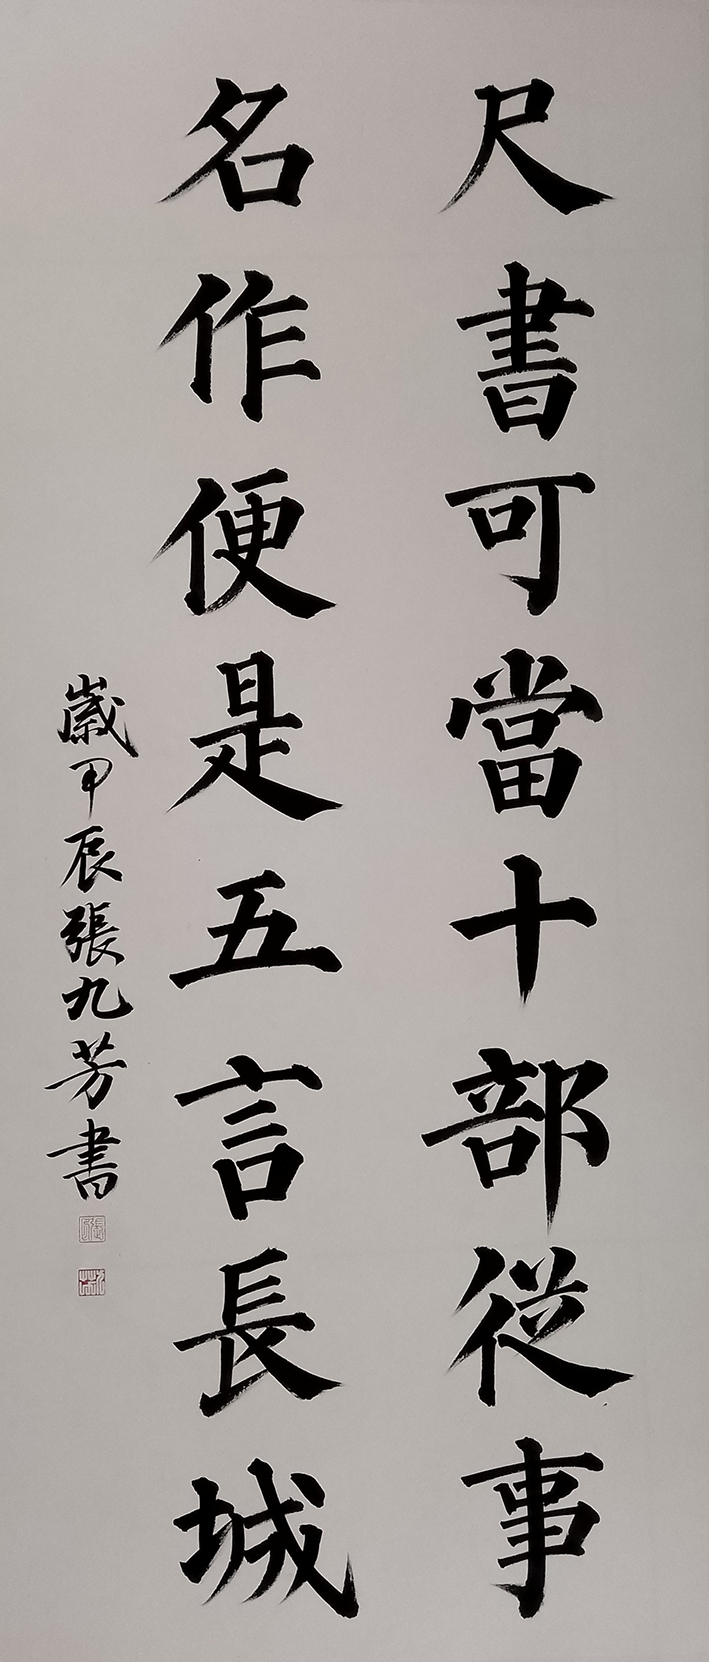 尺書可當十部從事
名作便是五言長城
歲甲辰張九芳書